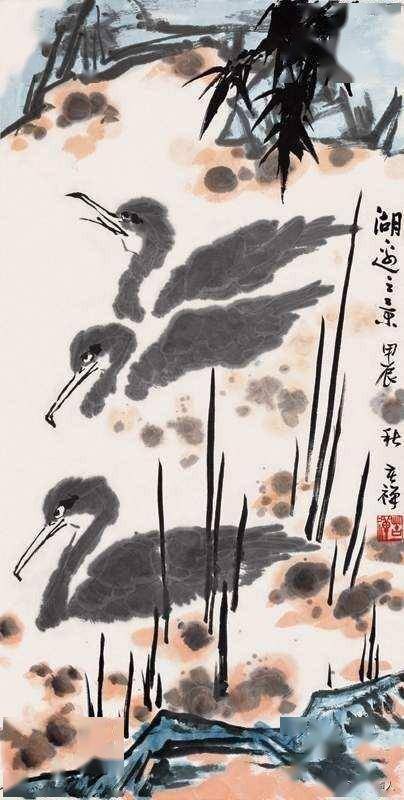 湖边之景 甲辰 秋 苦禅